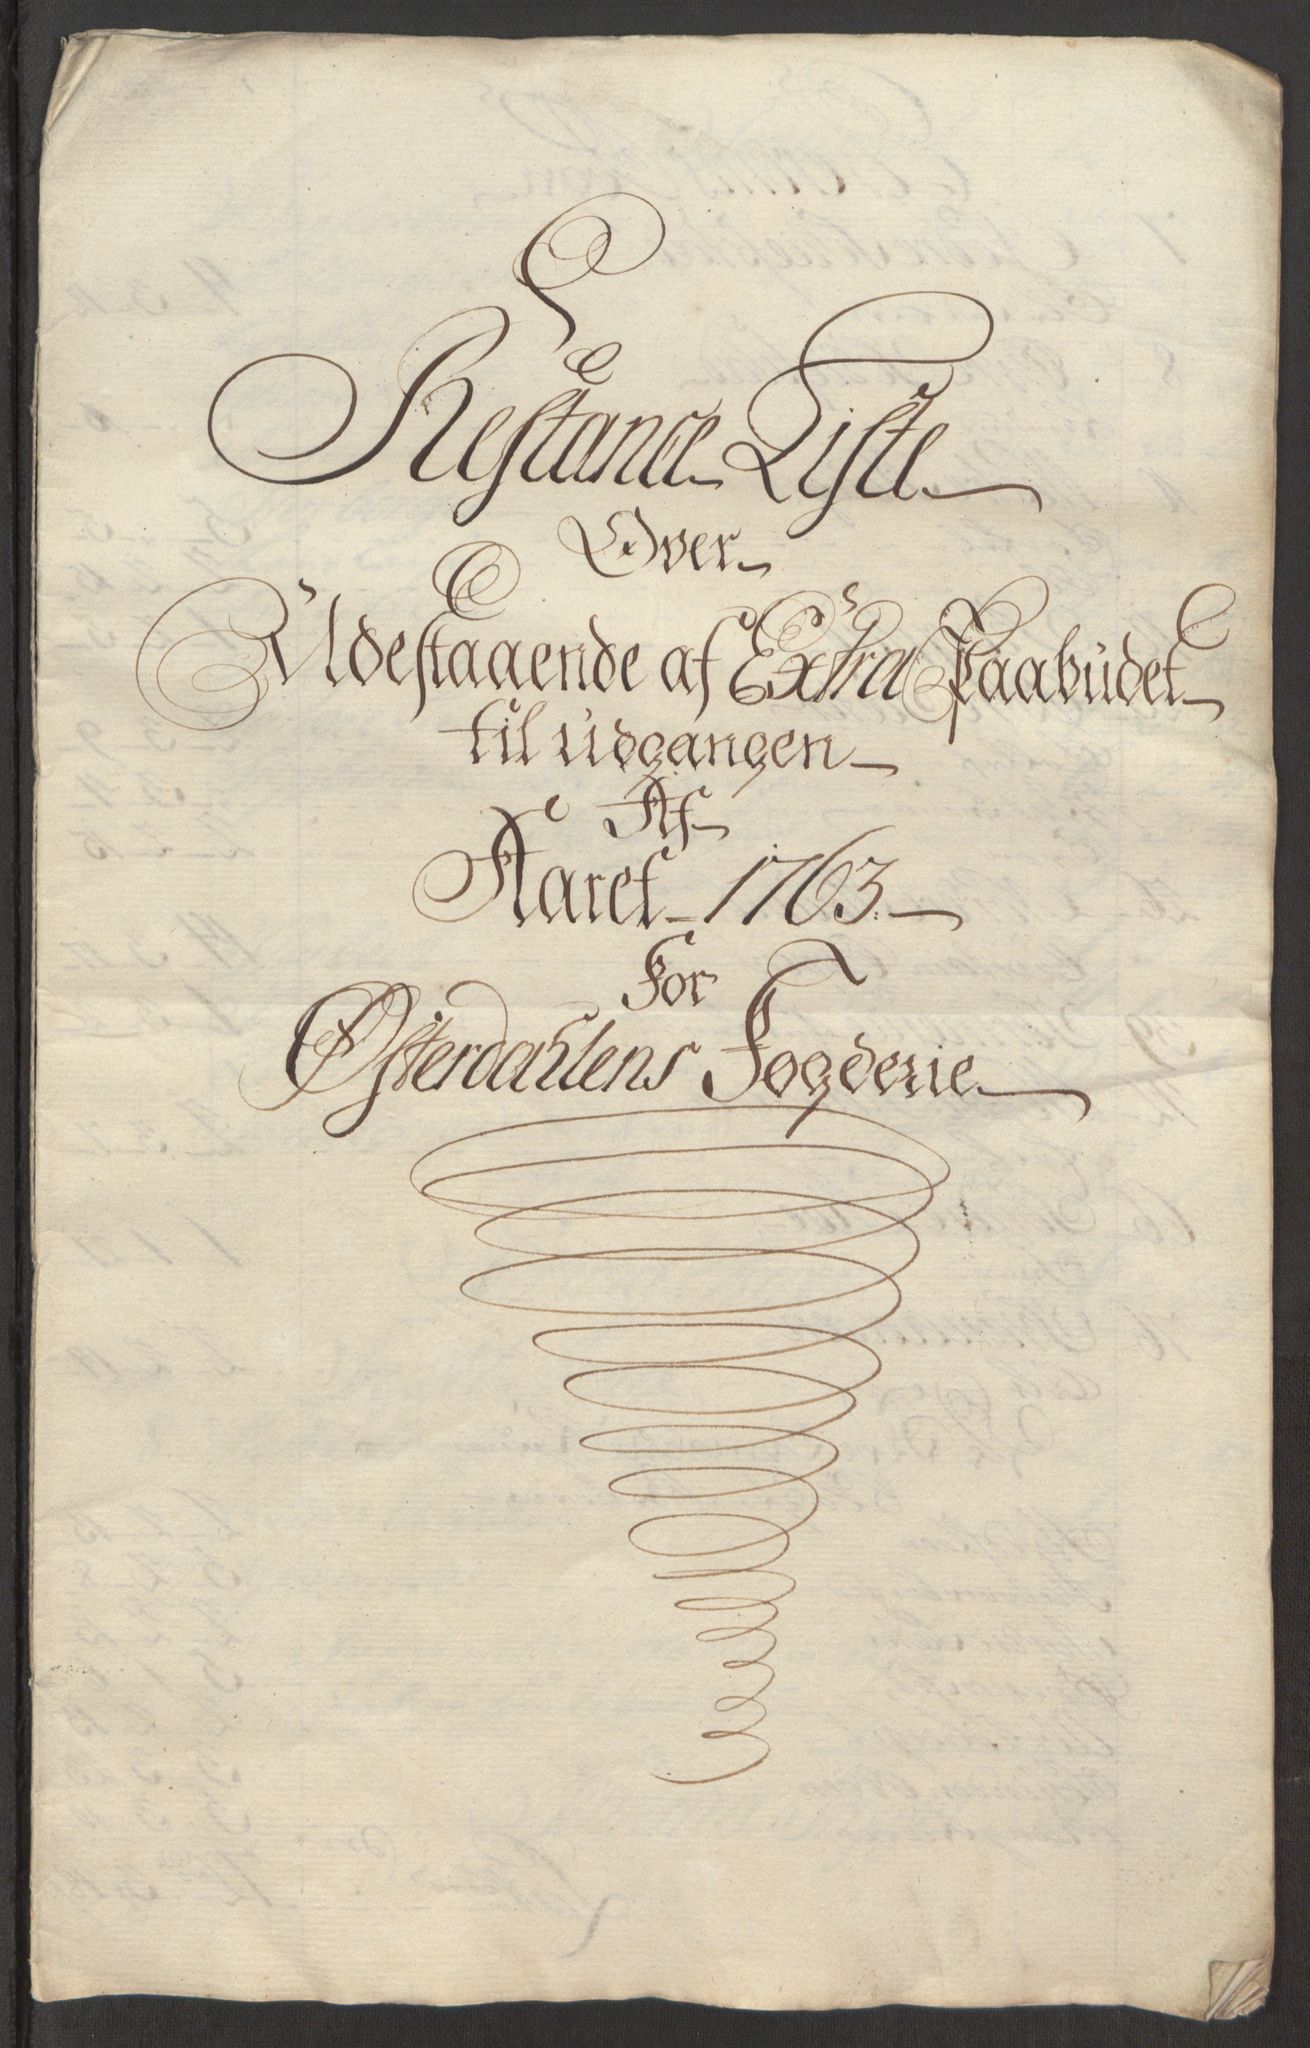 Restance Liste
Over
Udestaaende af Extra Paabudet
til udgangen
Af
Aaret 1763.
For
Østerdahlens Fogderie